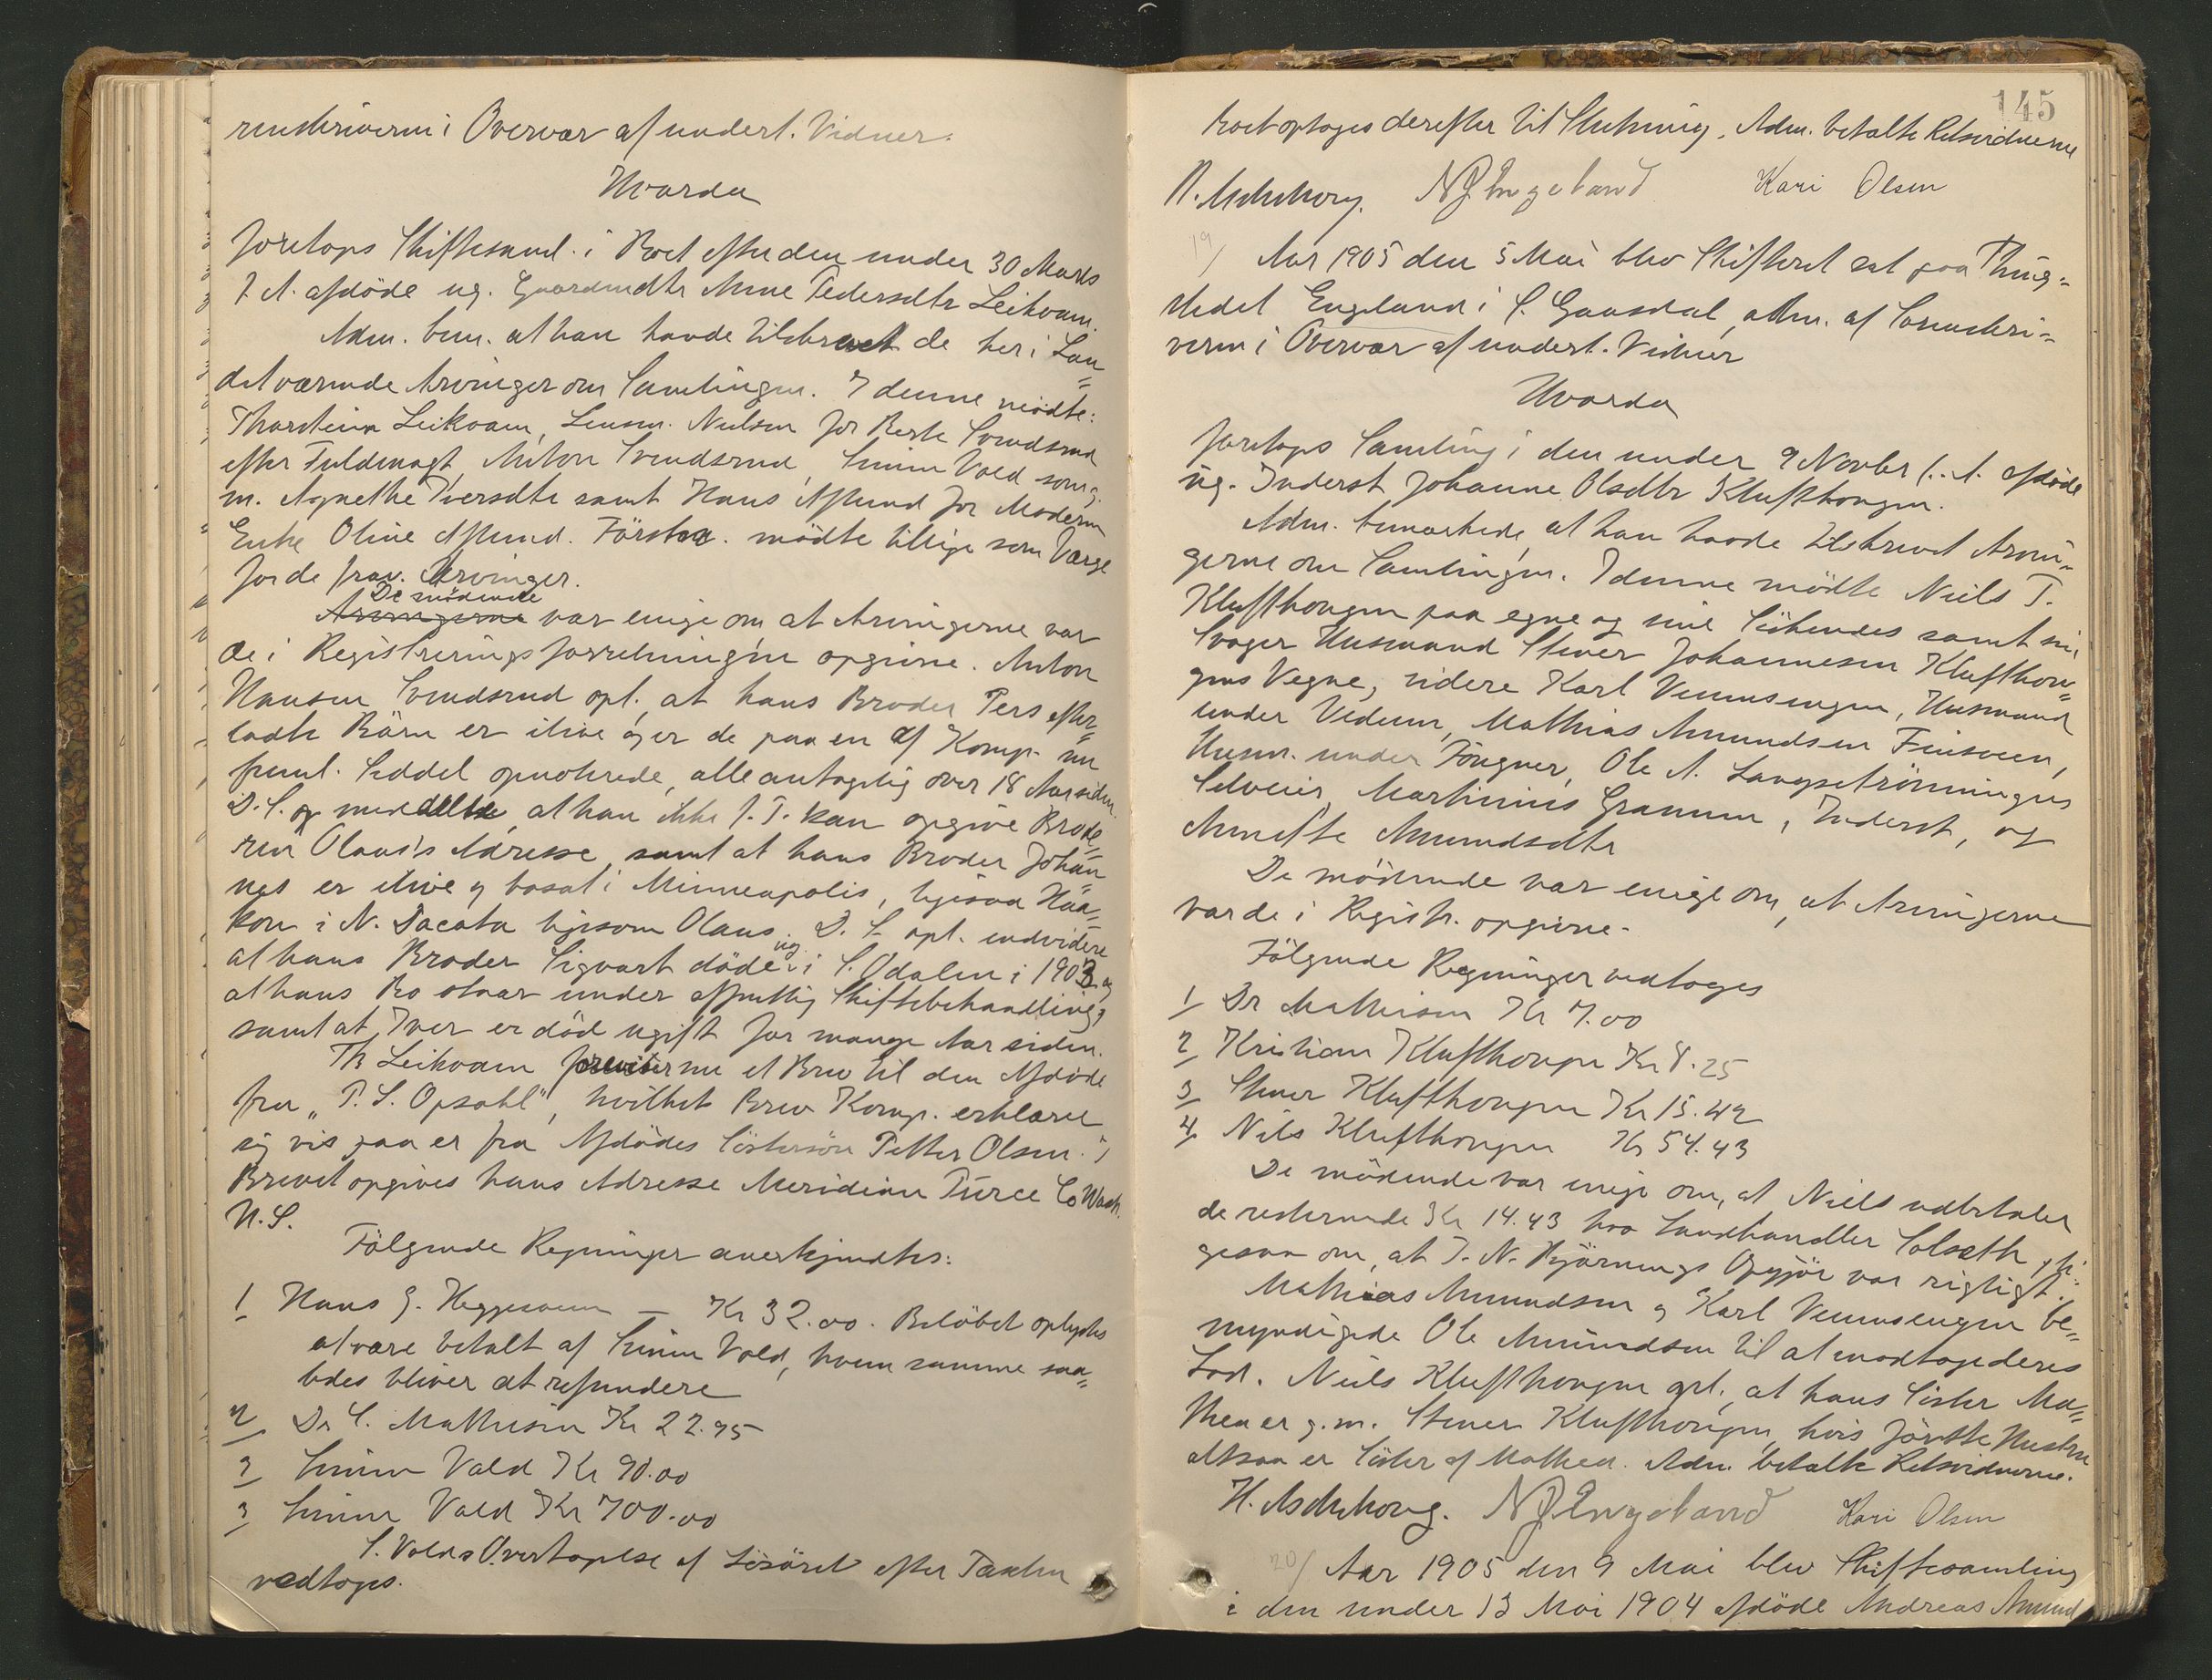 renskriveren i Overvær af undert. Vidner.
Hvorda
foretoges Skiftesaml. i Boet efter den under 30 Marts
f. A. afdöde ug. Gaardmdtr Anne Pedersdtr Leikvam.
Adm. bem. at han havde tilskrevet de her i Lan=
det værende Arvinger om Samlingen. I denne mödte:
Thorstein Leikvam, Lensm. Nielsen for Berte Svendsrud
efter Fuldmagt, Anton Svendsrud, Simen Vold som g.
m. Agnethe Iversdtr samt Hans Aflund for Moderen
Enke Oline Aflund. Förstn. mödte tillige som Værge
for de frav. Arvinger.
De mödende
Arvingerne var enige om, at Arvingerne var
de i Registreringsforretningen opgivne. Anton
Hansen Svendsrud opl., at hans Broder Pers efter=
ladte Börn er ilive og er de paa en af Komp. nu
freml. Seddel opnoterede, alle antagelig over 18 Aar siden.
D. S. og meddelte, at han ikke f. T. kan opgive Brode=
ren Olaus's Adresse, samt at hans Broder Johan=
nes er ilive og bosat i Minneapolis, ligesaa Haa=
kon i N. Dacota ligesom Olaus. D. S. opl. endvidere
at hans Broder Sigvart döde ug. i S. Odalen i 1903 og
at hans Bo staar under offentlig Skiftebehandling,
samt at Iver er död ugift for mange Aar siden.
Th Leikvam foreviser nu et Brev til den Afdöde
fra "P. S. Opsahl", hvilket Brev Komp. erklærer
sig vis paa er fra Afdödes Söstersön Petter Olsen. I
Brevet opgives hans Adresse Meridian Pierce Co Wash.
U.S.
Fölgende Regninger anerkjendtes:
1 Hans G. Heggesveen — Kr 32.00. Belöbet oplystes
at være betalt af Simen Vold, hvem samme saa=
ledes bliver at refundere
2 Dr S. Mathisen Kr 22.95
3 Simen Vold Kr 90.00
3 Simen Vold Kr 700.00
S. Volds Overtagelse af Lösöret efter Taxten
vedtoges.
145
Boet optoges derefter til Slutning. Adm. betalte Retsvidnerne
H. Aschehoug. N J Engeland Kari Olsen
19/ Aar 1905 den 5 Mai blev Skifteret sat paa Thing=
stedet Engeland i S. Gausdal, adm. af Sorenskri=
veren i Overvær af undert. Vidner
Hvorda
foretoges Samling i den under 9 Novbr f. A. afdöde
ug. Inderst Johanne Olsdtr Klufthougen.
Adm. bemærkede, at han havde tilskrevet Arvin=
gerne om Samlingen. I denne mödte Niels T.
Klufthougen paa egne og sine Söskendes samt sin
Svoger Husmand Stener Johannesen Klufthou=
gens Vegne, videre Karl Vennsengen, Husmand
under Vedum, Mathias Amundsen Finsveen,
Husm. under Fougner, Ole A. Langsetrönningens
Selveier, Martinius Gramm, Inderst, og
Annette Amundsdtr
De mödende var enige om, at Arvingerne
var de i Registr. opgivne.
Fölgende Regninger vedtoges
1 Dr Mathisen Kr 7.00
2 Kristian Klufthougen Kr 8.25
3 Stener Klufthougen Kr 15.42
4 Nils Klufthougen Kr 54.43
De mödende var enige om, at Niels udbetaler
de resterende Kr 14.43 hos Landhandler Solseth, li=
gesaa om, at J. N. Björnungs Opgjör var rigtigt.
Mathias Amundsen og Karl Vennsengen be=
myndigede Ole Amundsen til at modtage deres
Lod. Niels Klufthougen opl., at hans Söster Ma=
thea er g. m. Stener Klufthougen, hvis förste Hustru
altsaa er Söster af Mathea. Adm. betalte Retsvidnerne.
H. Aschehoug. N J Engeland Kari Olsen
20/ Aar 1905 den 9 Mai blev Skiftesamling
i den under 13 Mai 1904 afdöde Andreas Amund